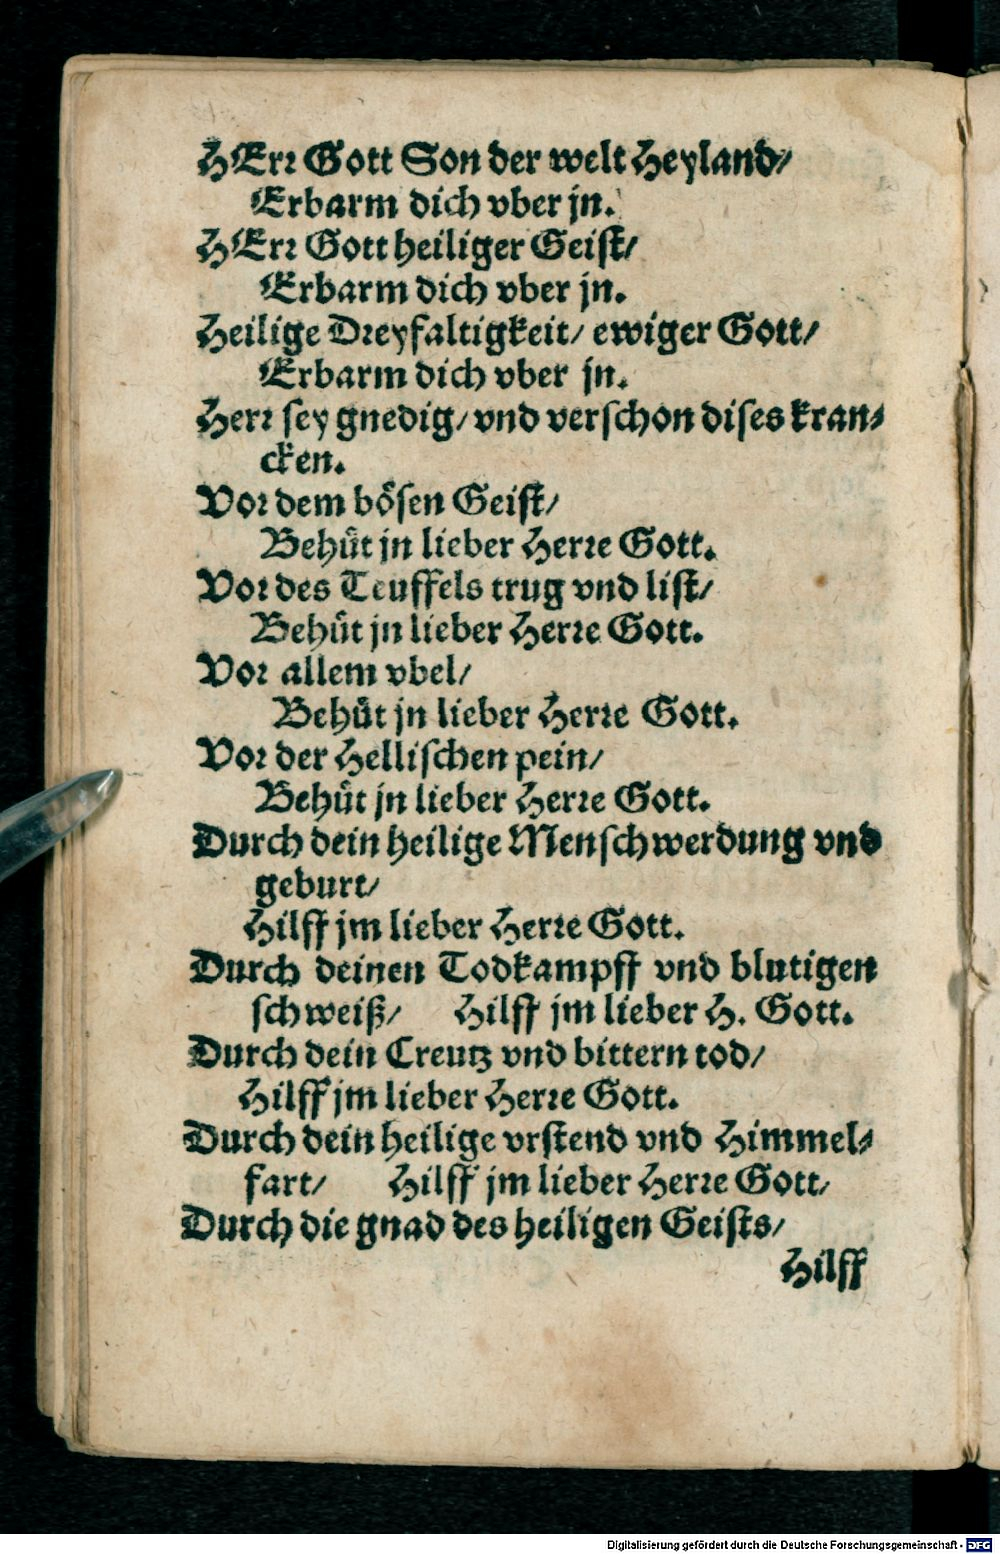 HErr Gott Son der welt Heyland/
Erbarm dich vber jn.
HErr Gott heiliger Geist/
Erbarm dich vber jn.
Heilige Dreyfaltigkeit/ ewiger Gott/
Erbarm dich vber jn.
Herr sey gnedig/ vnd verschon dises kran⸗
cken.
Vor dem bösen Geist/
Behüt jn lieber Herre Gott.
Vor des Teuffels trug vnd list/
Behüt jn lieber Herre Gott.
Vor allem vbel/
Behüt jn lieber Herre Gott.
Vor der Hellischen pein/
Behüt jn lieber Herre Gott.
Durch dein heilige Menschwerdung vnd
geburt/
Hilff jm lieber Herre Gott.
Durch deinen Todkampff vnd blutigen
schweiß/ Hilff jm lieber H. Gott.
Durch dein Creutz vnd bittern tod/
Hilff jm lieber Herre Gott.
Durch dein heilige vrstend vnd Himmel⸗
fart/ Hilff jm lieber Herre Gott/
Durch die gnad des heiligen Geists/
Hilff
Digitalisierung gefördert durch die Deutsche Forschungsgemeinschaft - DFG